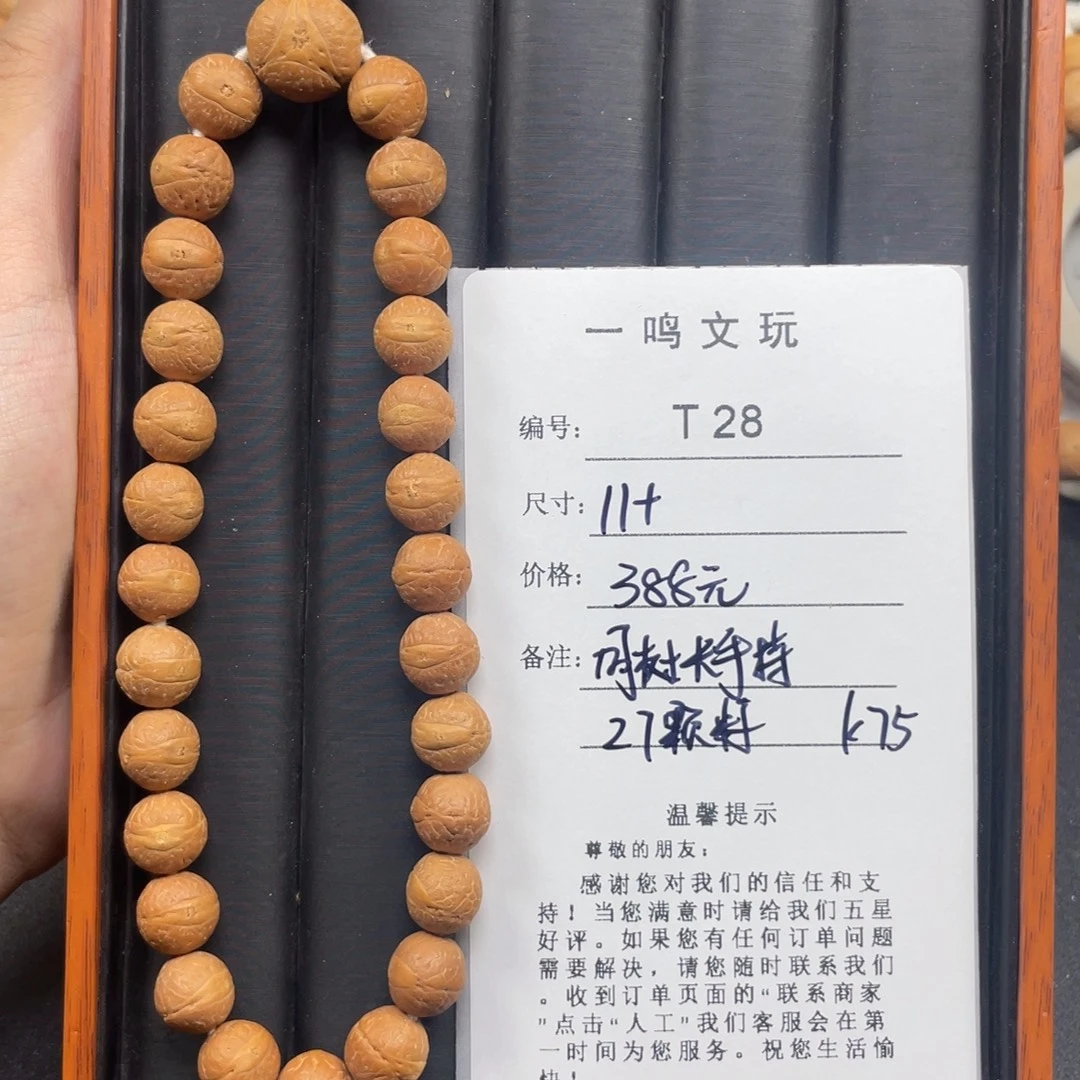 一鸣文玩
编号: T 28
尺寸: 11+
价格: 388元
备注:
27颗 k75
温馨提示
尊敬的朋友:
感谢您对我们的信任和支
持!当您满意时请给我们五星
好评。如果您有任何订单问题
需要解决,请您随时联系我们
。收到订单页面的“联系商家
”点击“人工”我们客服会在第
一时间为您服务。祝您生活愉
快!